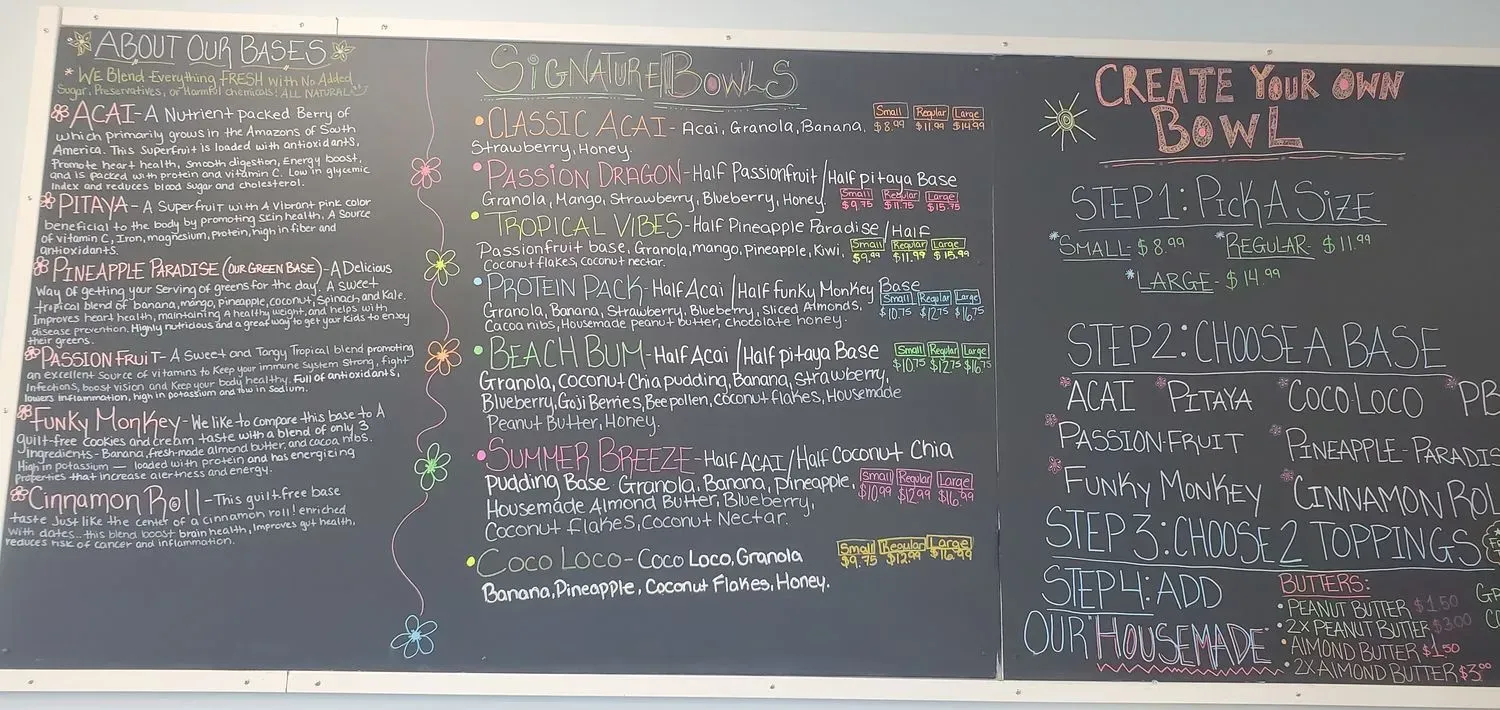 ABOUT OUR BASES
* WE Blend Everything FRESH with No Added
Sugar, Preservatives, or Harmful chemicals! ALL NATURAL
ACAI - A Nutrient packed Berry of
which primarily grows in the Amazons of South
America. This Superfruit is loaded with antioxidants,
Promote heart health, Smooth digestion, Energy boost,
and is packed with protein and vitamin C. Low in glycemic
Index and reduces blood sugar and cholesterol.
PITAYA - A Superfruit with A Vibrant pink color
beneficial to the body by promoting skin health. A Source
of vitamin C, Iron, magnesium, protein, high in fiber and
antioxidants.
PINEAPPLE PARADISE (OUR GREEN BASE) - A Delicious
Way of getting your Serving of greens for the day. A sweet
tropical blend of banana, mango, pineapple, coconut, Spinach and Kale.
Improves heart health, maintaining A healthy weight, and helps with
disease prevention. Highly nutricious and a great way to get your Kids to enjoy
their greens.
PASSION FRUIT - A Sweet and Tangy Tropical blend promoting
an excellent Source of vitamins to Keep your immune System Strong, fight
Infections, boost vision and Keep your body healthy. Full of antioxidants,
lowers inflammation, high in potassium and low in Sodium.
FUNKY MONKEY - We like to compare this base to A
guilt-free cookies and cream taste with a blend of only 3
Ingredients - Banana, fresh-made almond butter, and cacoa nibs.
High in potassium — loaded with protein and has energizing
Properties that increase alertness and energy.
Cinnamon Roll - This guilt-free base
taste Just like the center of a cinnamon roll! enriched
With dates... this blend boost brain health, Improves gut health,
reduces risk of cancer and inflammation.
SIGNATURE BOWLS
Small Regular Large
• CLASSIC ACAI - Acai, Granola, Banana, $8.99 $11.99 $14.99
Strawberry, Honey.
• PASSION DRAGON - Half Passionfruit / Half pitaya Base
Granola, Mango, Strawberry, Blueberry, Honey. Small Regular Large
$9.75 $11.75 $15.75
• TROPICAL VIBES - Half Pineapple Paradise / Half
Passionfruit base, Granola, mango, Pineapple, Kiwi, Small Regular Large
Coconut flakes, coconut nectar. $9.99 $11.99 $15.99
• PROTEIN PACK - Half Acai / Half Funky Monkey Base
Granola, Banana, Strawberry, Blueberry, Sliced Almonds, Small Regular Large
Cacoa nibs, Housemade peanut butter, chocolate honey. $10.75 $12.75 $16.75
• BEACH BUM - Half Acai / Half pitaya Base Small Regular Large
$10.75 $12.75 $16.75
Granola, Coconut Chia pudding, Banana, Strawberry,
Blueberry, Goji Berries, Bee pollen, coconut flakes, Housemade
Peanut Butter, Honey.
• SUMMER BREEZE - Half ACAI / Half Coconut Chia
Pudding Base Granola, Banana, Pineapple, Small Regular Large
Housemade Almond Butter, Blueberry, $10.99 $12.99 $16.99
Coconut Flakes, Coconut Nectar.
• COCO LOCO - Coco Loco, Granola Small Regular Large
$9.75 $12.99 $16.99
Banana, Pineapple, Coconut Flakes, Honey.
CREATE YOUR OWN
BOWL
STEP 1: PICK A SIZE
*SMALL - $8.99 *REGULAR - $11.99
*LARGE - $14.99
STEP 2: CHOOSE A BASE
ACAI PITAYA COCO-LOCO PB
PASSION-FRUIT PINEAPPLE-PARADIS
FUNKY MONKEY CINNAMON ROL
STEP 3: CHOOSE 2 TOPPINGS
STEP 4: ADD
OUR HOUSEMADE
BUTTERS:
• PEANUT BUTTER $1.50
• 2X PEANUT BUTTER $3.00
• AlMOND BUTTER $1.50
• 2X AlMOND BUTTER $3.00